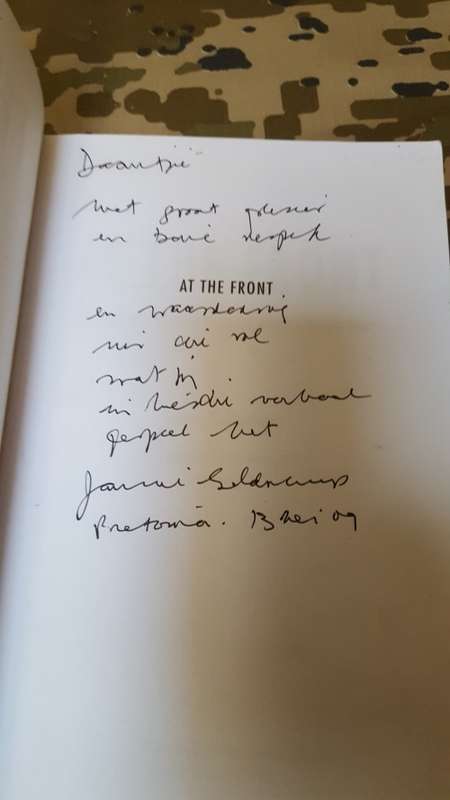 Daantjie
met groot plesier
en baie respek
AT THE FRONT
en waardering
vir die rol
wat jy
in hierdie verhaal
gespeel het
Jannie Geldenhuys
Pretoria. 13 Mei 09